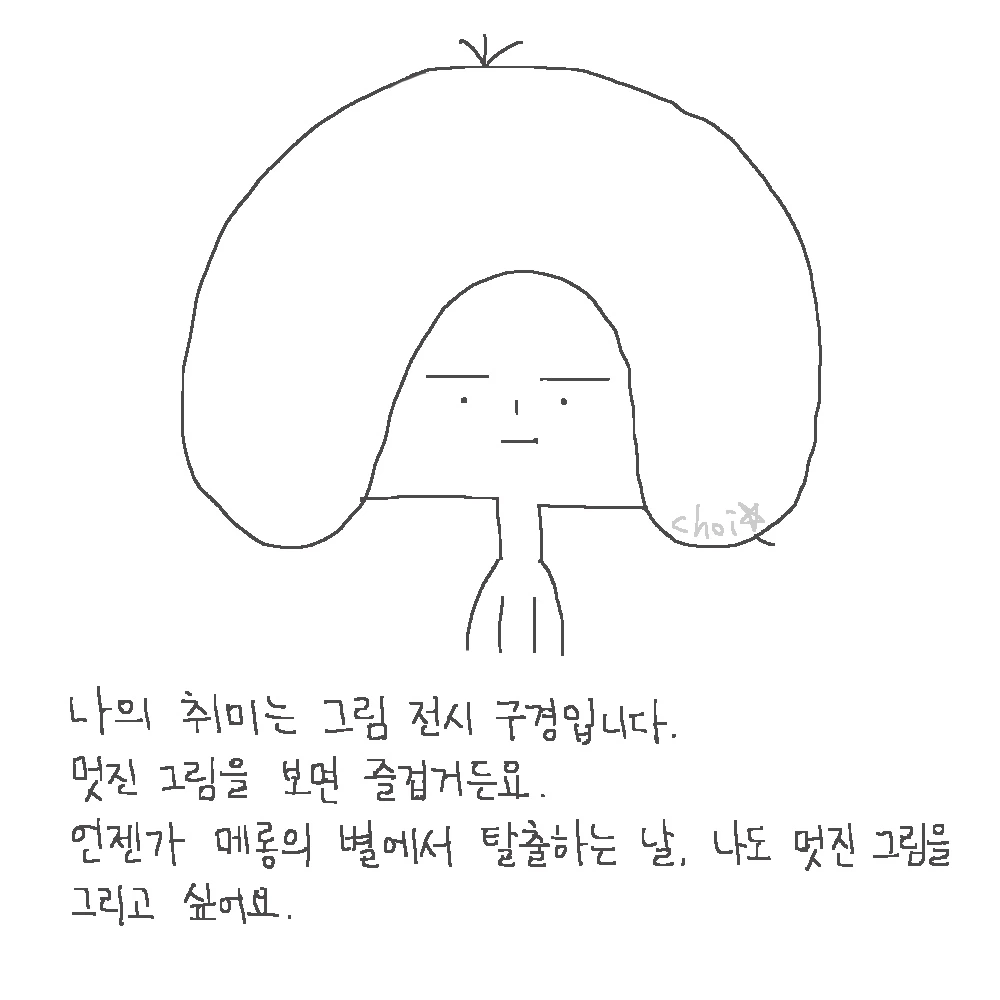 choi☆
나의 취미는 그림 전시 구경입니다.
멋진 그림을 보면 즐겁거든요.
언젠가 메롱의 별에서 탈출하는 날, 나도 멋진 그림을
그리고 싶어요.